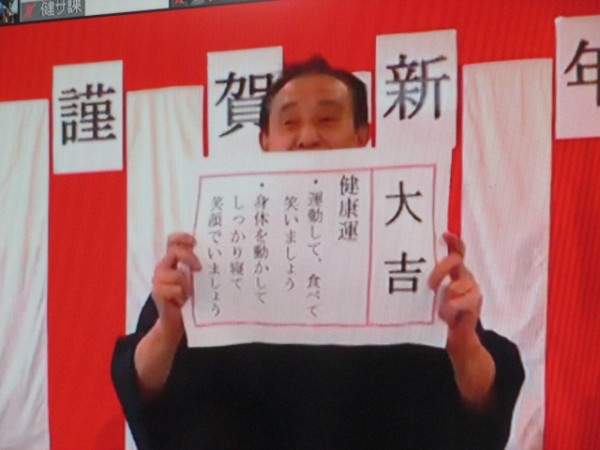 健サ課
謹賀新年
大吉
健康運
・運動して、食べて
笑いましょう
・身体を動かして
しっかり寝て
笑顔でいましょう